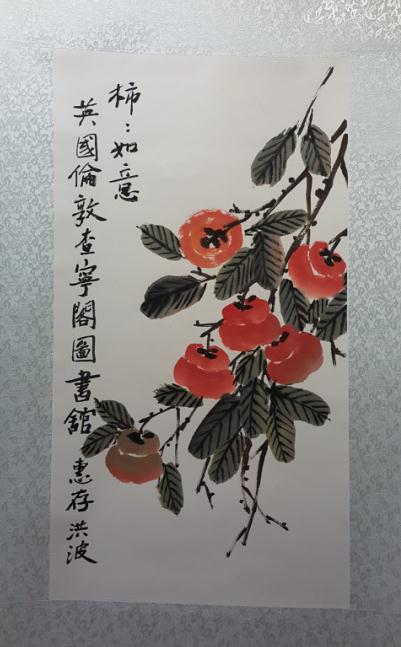 柿：如意
英國倫敦查寧閣圖書舘 惠存 洪波